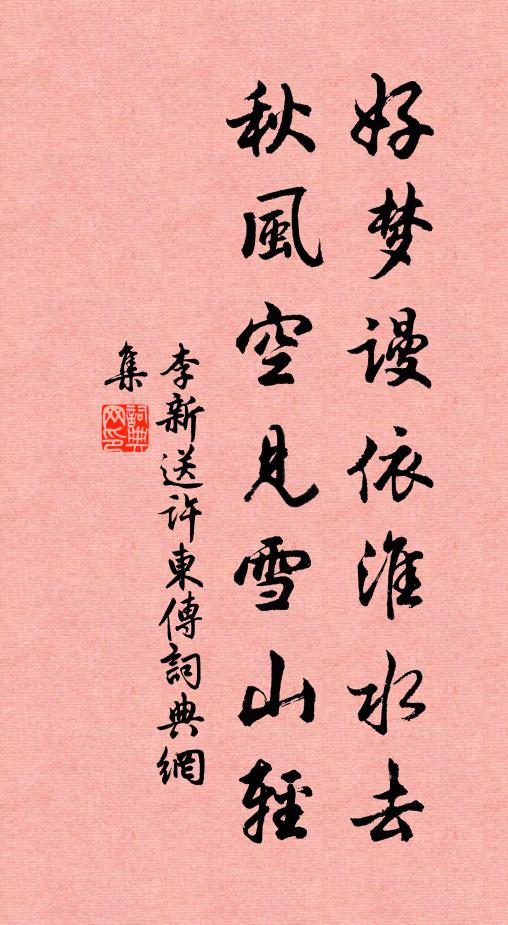 好梦谩依淮水去
秋風空見雪山輕
李新送许東傳詞典網
集
詞典
网印